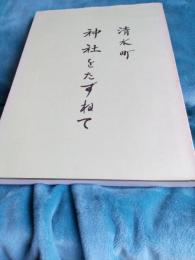 清水町
神社をたずねて